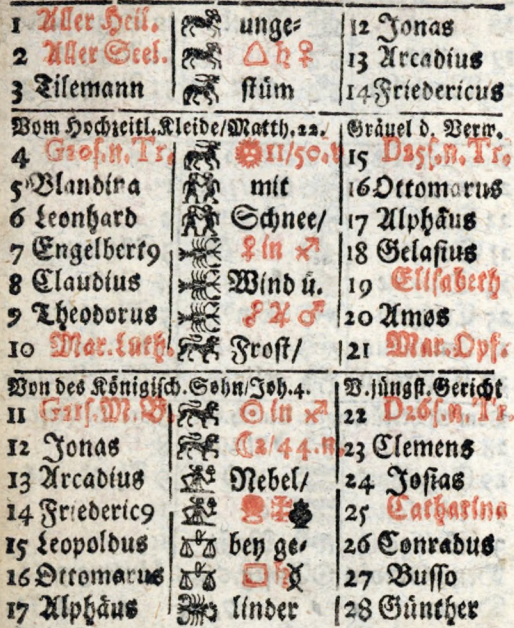 1 Aller Heil. unge- 12 Jonas
2 Aller Seel. △ ♄ ♀ 13 Arcadius
3 Tilemann stüm 14 Friedericus
Vom Hochzeitl. Kleide/Matth. 22. Gräuel d. Verw.
4 G20s.n.Tr. 11/50.v 15 D25s.n.Tr.
5 Blandina mit 16 Ottomarus
6 Leonhard Schnee/ 17 Alphäus
7 Engelbert9 ♀ in ♐ 18 Gelasius
8 Claudius Wind ů. 19 Elisabeth
9 Theodorus ☍ ♃ ♂ 20 Amos
10 Mar. Luth. Frost/ 21 Mar. Opf.
Von des Königisch. Sohn/Joh. 4. V. jüngst. Gericht
11 G21s.M.B. ☉ in ♐ 22 D26s.n.Tr.
12 Jonas ☾2/44.n. 23 Clemens
13 Arcadius Nebel/ 24 Josias
14 Frideric9 25 Catharina
15 Leopoldus bey ge- 26 Conradus
16 Ottomarus □ ♄ 27 Busso
17 Alphäus linder 28 Günther